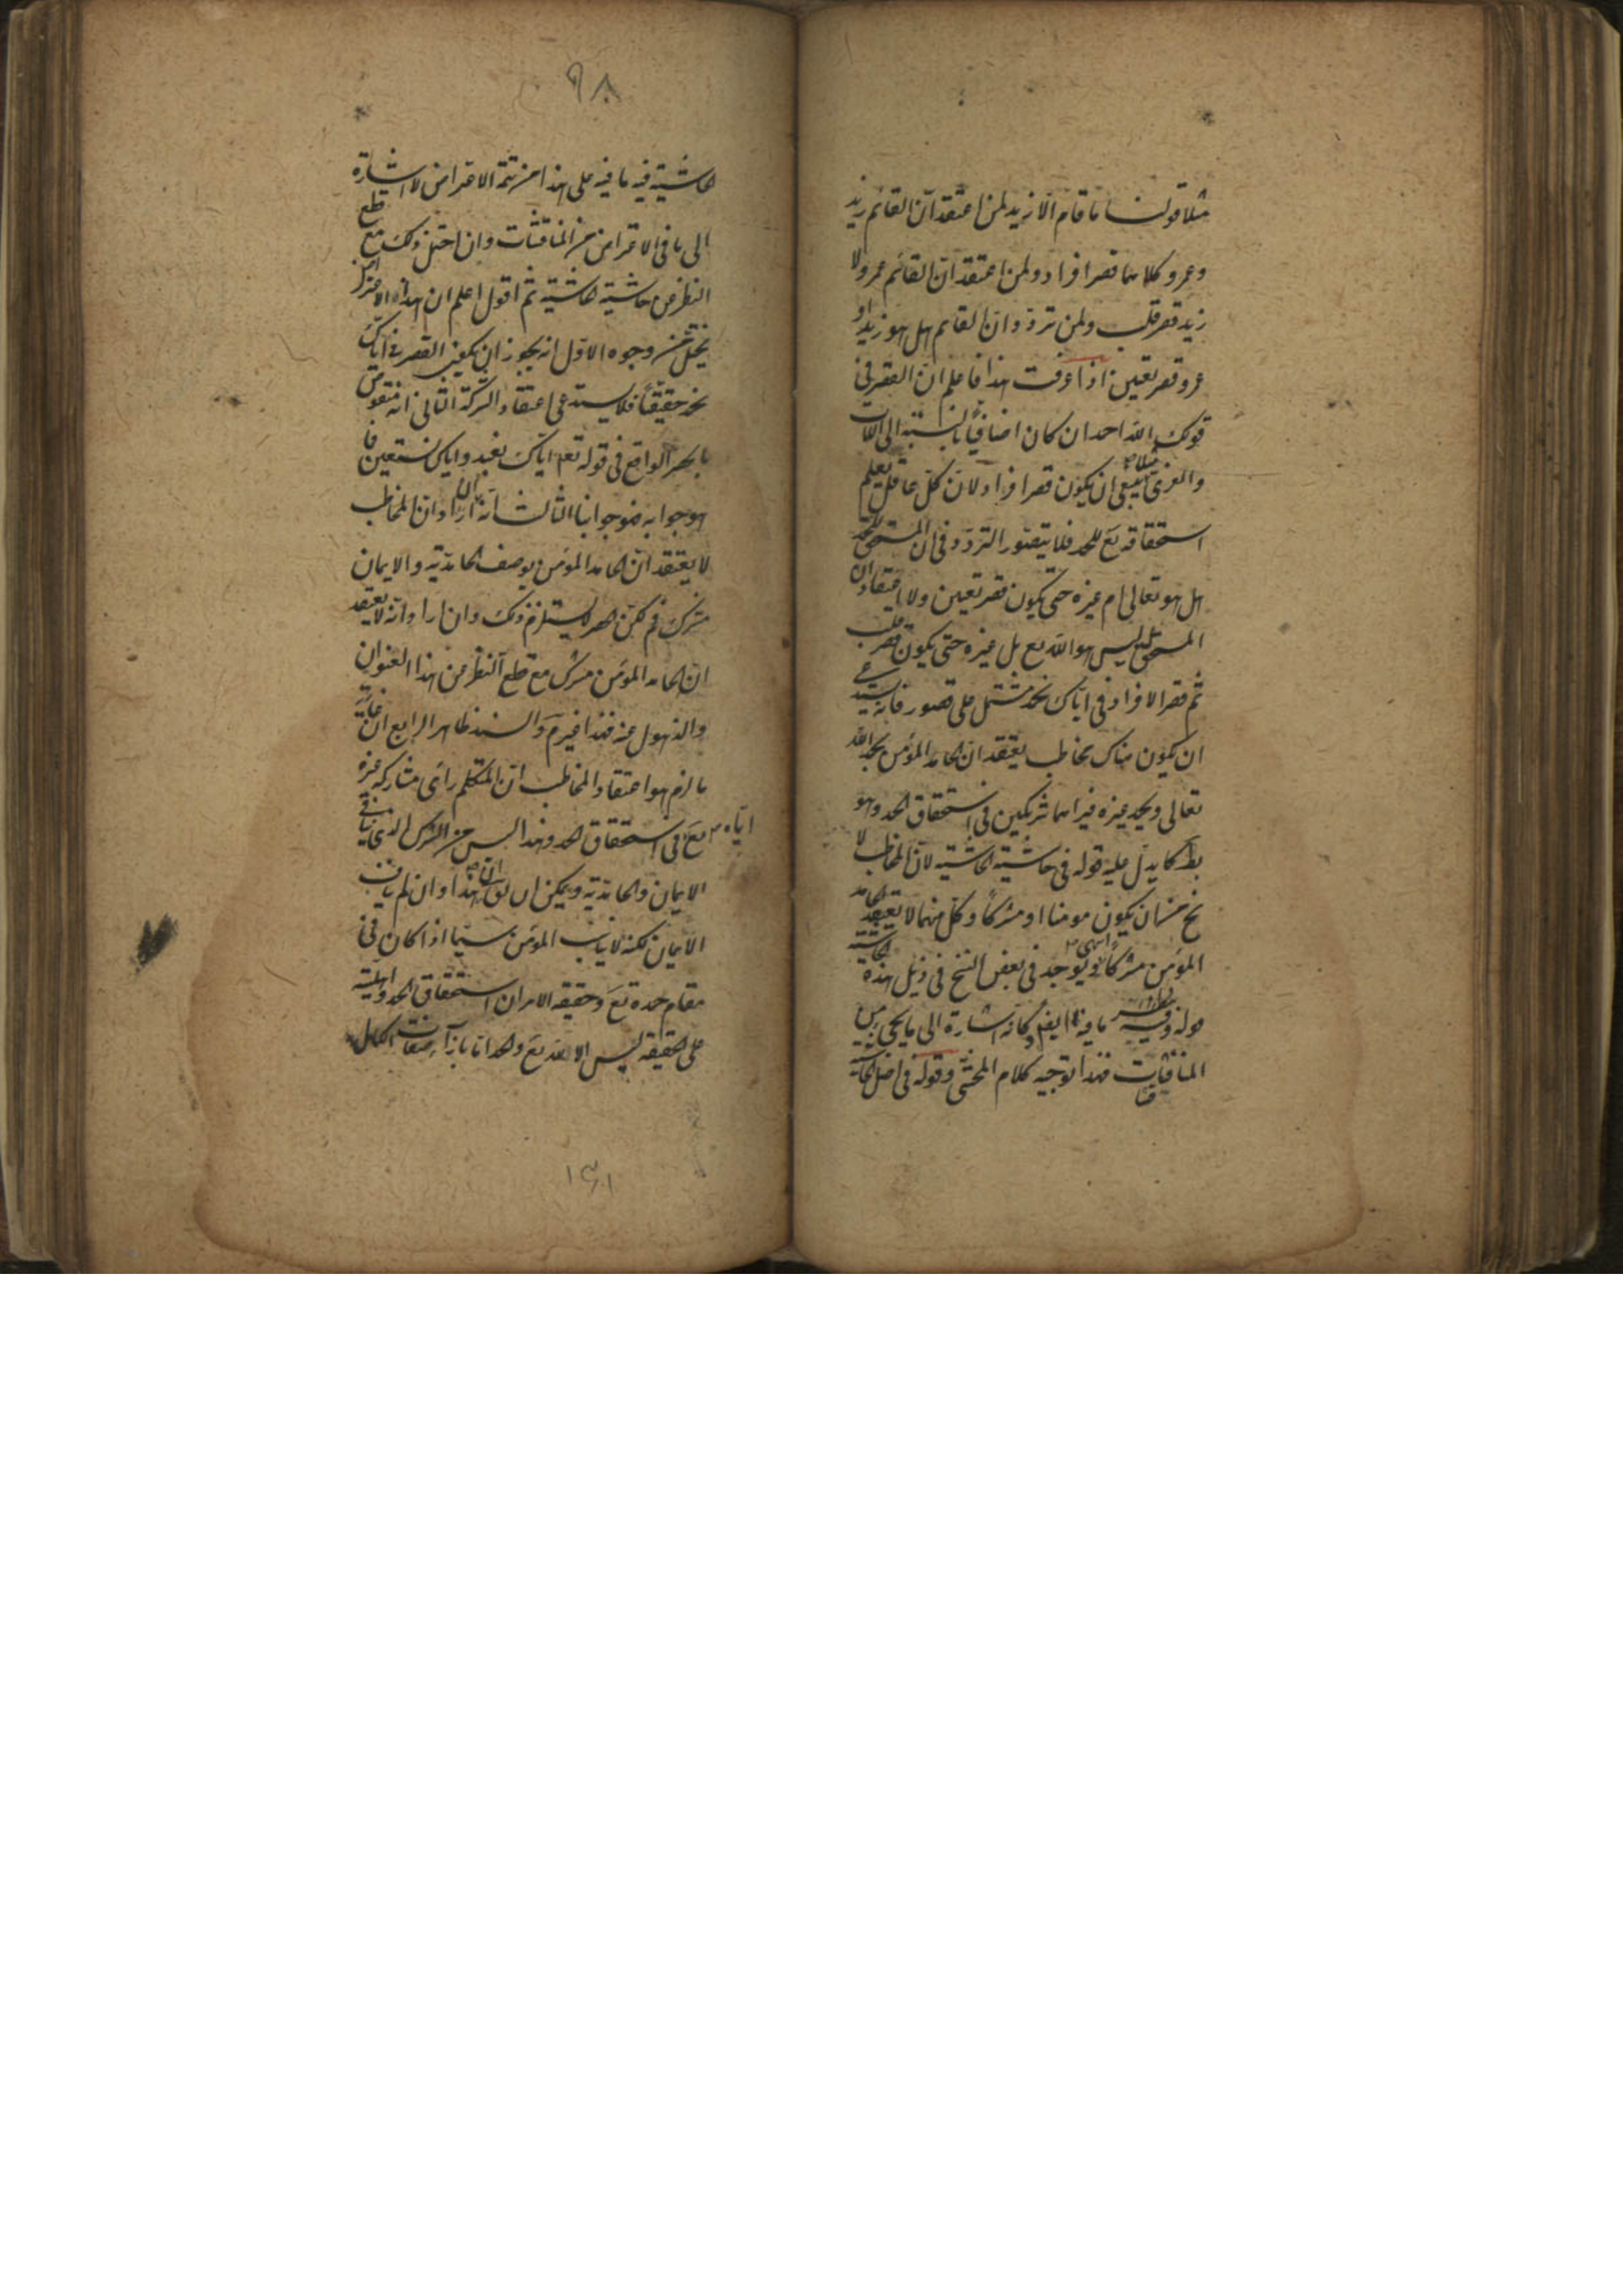 مثلا قولنا ما قام الا زيد لمن اعتقد ان القائم زيد
وعمرو كلاهما قصر افراد ولمن اعتقد ان القائم عمرو لا
زيد قصر قلب ولمن تردد وان القايم هل هو زيد او
عمرو قصر تعيين اذا عرفت هذا فاعلم ان القصر في
قولك الله احمد ان كان اضافيا بالنسبة الى اللات
والعزى مثلا ينبغي ان يكون قصر افراد لان كل عاقل يعلم
استحقاقه تع للحمد فلا يتصور التردد في ان المستحق للحمد
هل هو تعالى ام غيره حتى يكون قصر تعيين ولا اعتقاد ان
المستحق ليس هو الله تع بل غيره حتى يكون قصر قلب
ثم قصر الافراد في اياك نحمد مشتمل على قصور فانه يستدعي
ان يكون هناك مخاطب يعتقد ان الحامد المؤمن يحمد الله
تعالى ويحمد غيره فيراهما شريكين في استحقاق الحمد وهو
بط كما يدل عليه قوله في حاشية الحاشية لان المخاطب لا
يخ من ان يكون مومنا او مشركا وكل منهما لا يعتقد الحامد
المؤمن مشركا انتهى ويوجد في بعض النسخ في ذيل هذه الحاشية
قوله وفيه ما فيه ايضا وكانه اشارة الى ما يجئ من
المناقشات فهذا توجيه كلام المحشي وقوله في اصل الحاشية
٩٨
الحاشية فيه ما فيه على هذا من تتمة الاعتراض لا اشارة
الى ما في الاعتراض من المناقشات وان احتمل ذلك مع قطع
النظر عن حاشية الحاشية ثم اقول اعلم ان هذا الاعتراض
يختل من وجوه الاول انه يجوز ان يكون القصر في اياك
نحمد حقيقيا فلا يستدعي اعتقاد الشركة الثاني انه منقوض
بالحصر الواقع في قوله تع اياك نعبد واياك نستعين فما
هو جوابه فهو جوابنا الثالث انه ان اراد ان المخاطب
لا يعتقد ان الحامد المؤمن بوصف الحامدية والايمان
مشرك فم لكن الحصر لا يستلزم ذلك وان اراد انه لا يعتقد
ان الحامد المؤمن مشرك مع قطع النظر عن هذا العنوان
والذهول عنه فهذا غير م والسند ظاهر الرابع ان غاية
ما لزم هو اعتقاد المخاطب ان المتكلم راى مشاركة غيره
اياه تع في استحقاق الحمد وهذا ليس من الشرك الذي ينافي
الايمان والحامدية ويمكن ان يق ان هذا وان لم يناف
الايمان لكنه لا يناسب المؤمن سيما اذا كان في
مقام حمده تع وحقيقة الامر ان استحقاق الحمد واهليته
على الحقيقة ليس الا لله تع والحمد انما بازاء صفات الكمال